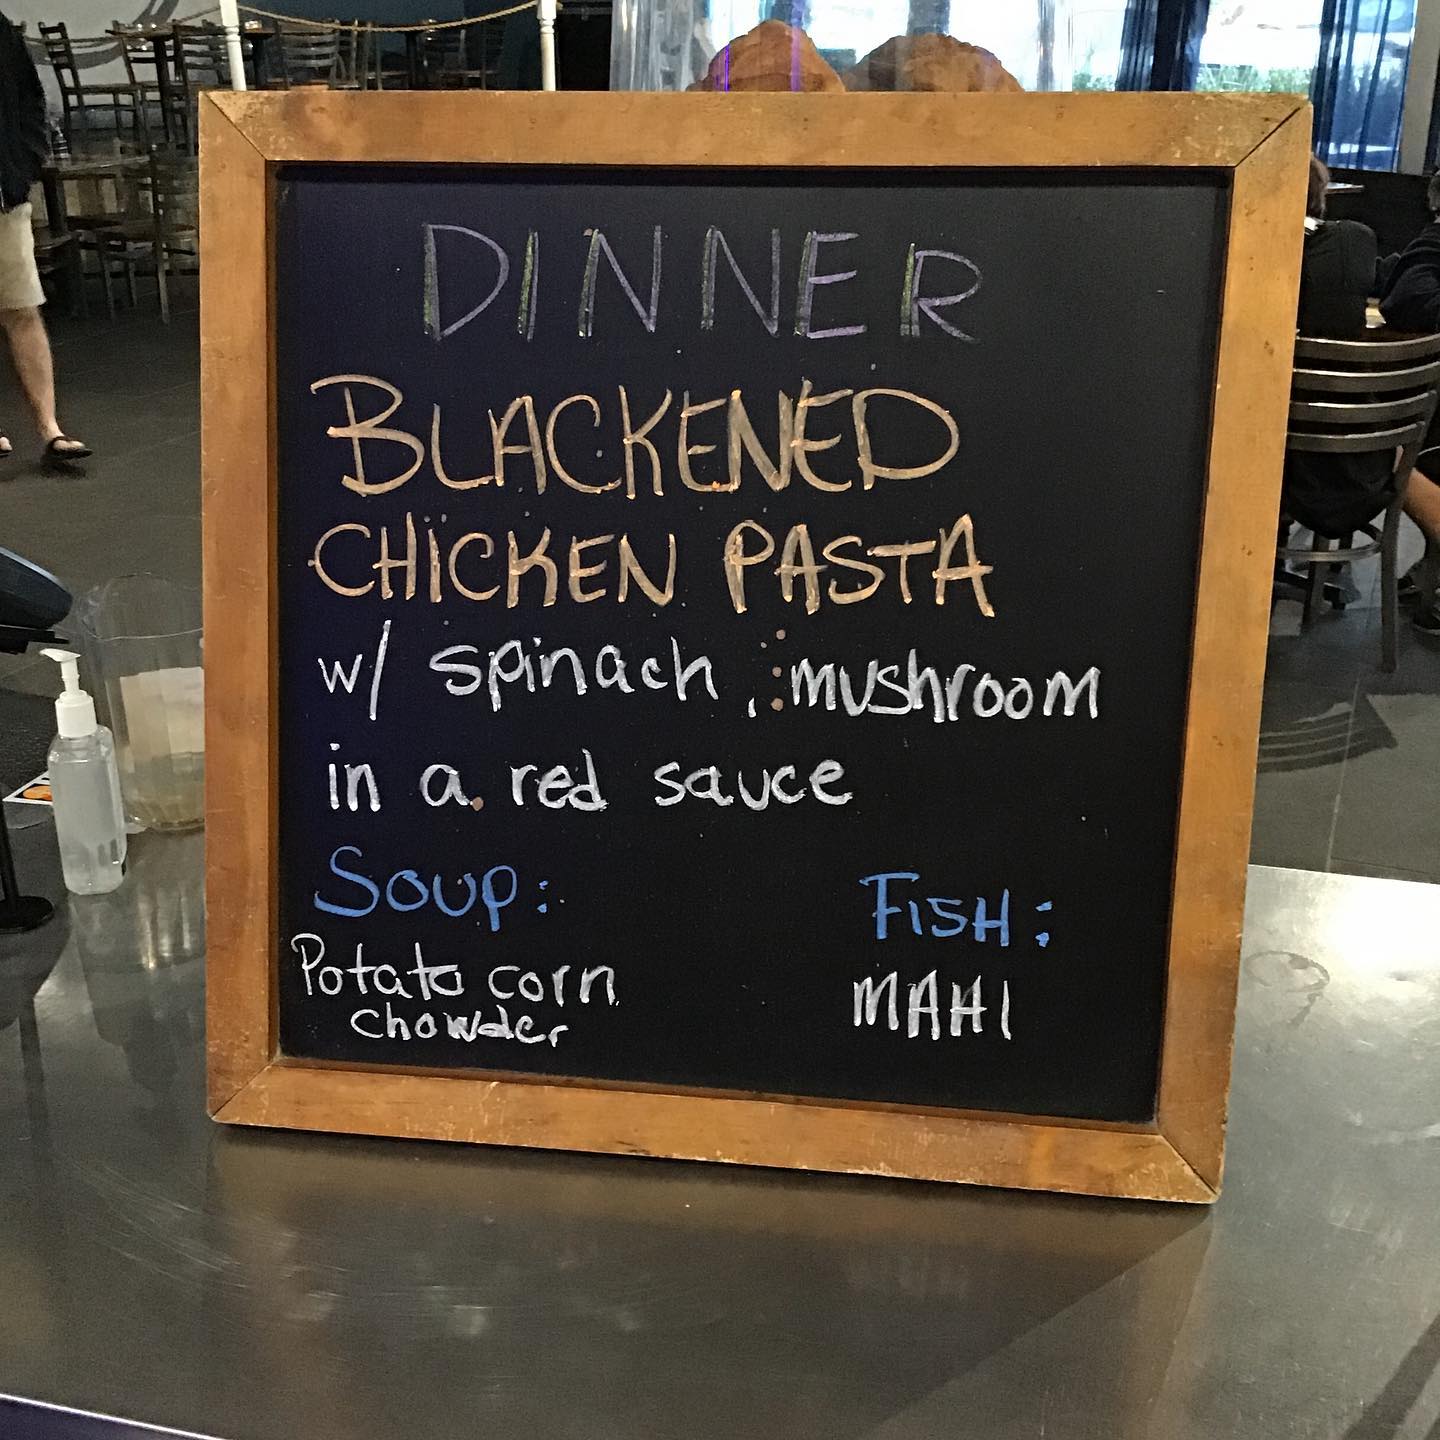 DINNER
BLACKENED
CHICKEN PASTA
w/ spinach, mushroom
in a red sauce
SOUP: FISH:
Potato corn MAHI
chowder